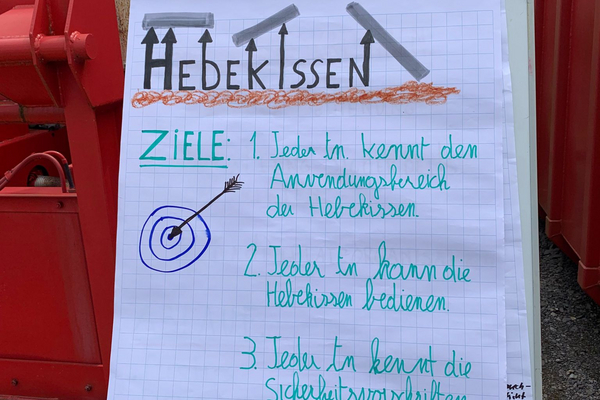 HEBEKISSEN
ZIELE: 1. Jeder tn. kennt den
Anwendungsbereich
der Hebekissen.
2. Jeder tn kann die
Hebekissen bedienen.
3. Jeder tn kennt die
Sicherheitsvorschriften